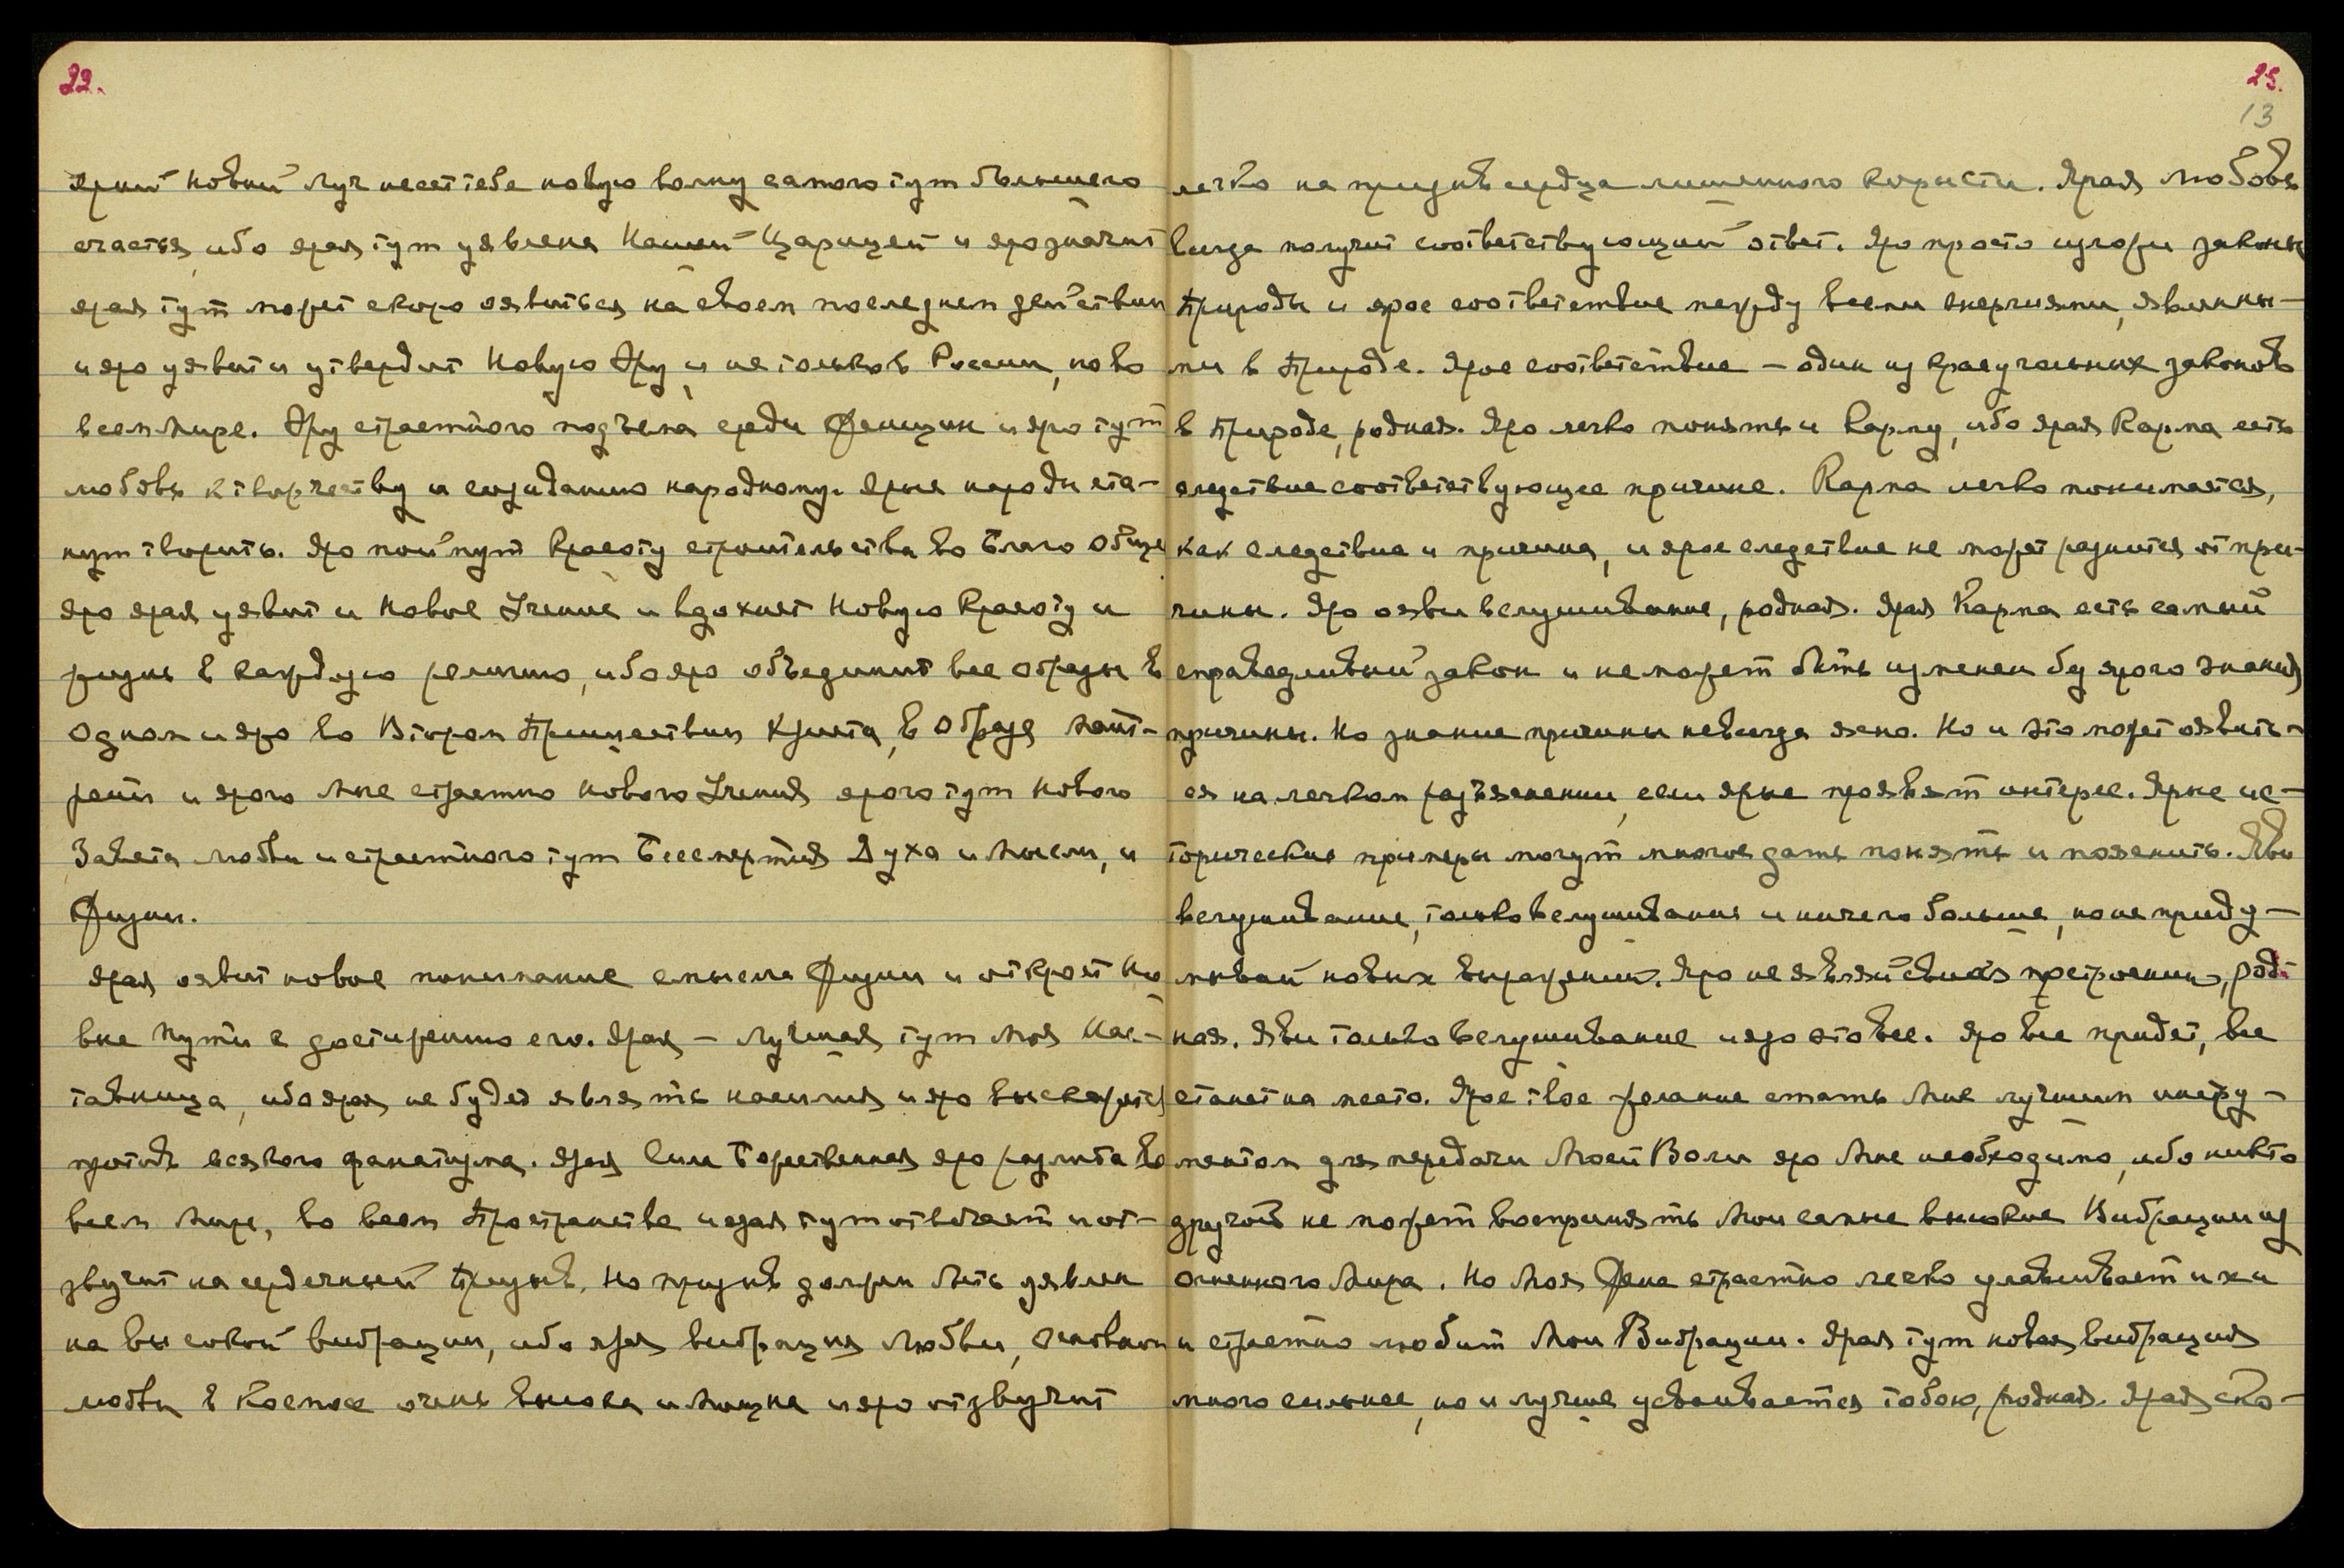 22.
Яркий Новый Луч несет тебе новую волну самого тут большего
счастья, ибо ярая тут уявлена Нашей Царицей и яро значит
ярая тут может скоро оявиться на своем последнем действии
и яро уявит и утвердит Новую Эру, и не только в России, но во
всем Мире. Эру страстного подъема среди женщин и яро тут
любовь к творчеству и созиданию народному. Ярые народы ста-
нут творить. Яро поймут Красоту строительства во Благо Общее
яро ярая уявит и Новое Учение и вдохнет Новую Красоту и
жизнь в каждую религию, ибо яро объединит все Образы в
Одном и яро во Втором Пришествии Христа, в Образе Майт-
рейи и ярого Мне страстно Нового Учения ярого тут Нового
Завета Любви и страстного тут Бессмертия Духа и Мысли, и
Жизни.
Ярая оявит новое понимание смысла Жизни и откроет Но-
вые Пути к достижению его. Ярая – лучшая тут Моя Нас-
тавница, ибо ярая не будет являть насилия и яро выскажется
против всякого фанатизма. Ярая Сила Божественная яро разлита во
всем Мире, во всем Пространстве и ярая тут отвечает и от-
звучит на сердечный Призыв. Но призыв должен быть уявлен
на высокой вибрации, ибо ярая вибрация Любви, Основной
любви в Космосе очень высока и мощна и яро отзвучит
23.
13
легко на призыв сердца лишенного корысти. Ярая Любовь
всегда получит соответствующий ответ. Яро просто изложи законы
Природы и ярое соответствие между всеми энергиями, явленны-
ми в Природе. Ярое соответствие – один из краеугольных законов
в Природе, родная. Яро легко понять и Карму, ибо ярая Карма есть
следствие соответствующее причине. Карма легко понимается,
как следствие и причина, и ярое следствие не может разниться от при-
чины. Яро ояви вслушивание, родная. Ярая Карма есть самый
справедливый закон и не может быть изменен без ярого знания
причины. Но знание причины не всегда ясно. Но и это может оявить-
ся на легком разъяснении, если ярые проявят интерес. Ярые ис-
торические примеры могут многое дать понять и пояснить. Яви
вслушивание, только вслушивание и ничего больше, но не приду-
мывай новых выражений. Яро не являй своих построений, род-
ная. Яви только вслушивание и яро это все. Яро все придет, все
станет на место. Ярое твое желание стать Мне лучшим инстру-
ментом для передачи Моей Воли яро Мне необходимо, ибо никто
другой не может воспринять Мои самые высокие Вибрации из
Огненного Мира. Но Моя Жена страстно легко улавливает их и
и страстно любит Мои Вибрации. Ярая тут новая вибрация
много сильнее, но и лучше усваивается тобою, родная. Ярая ско-